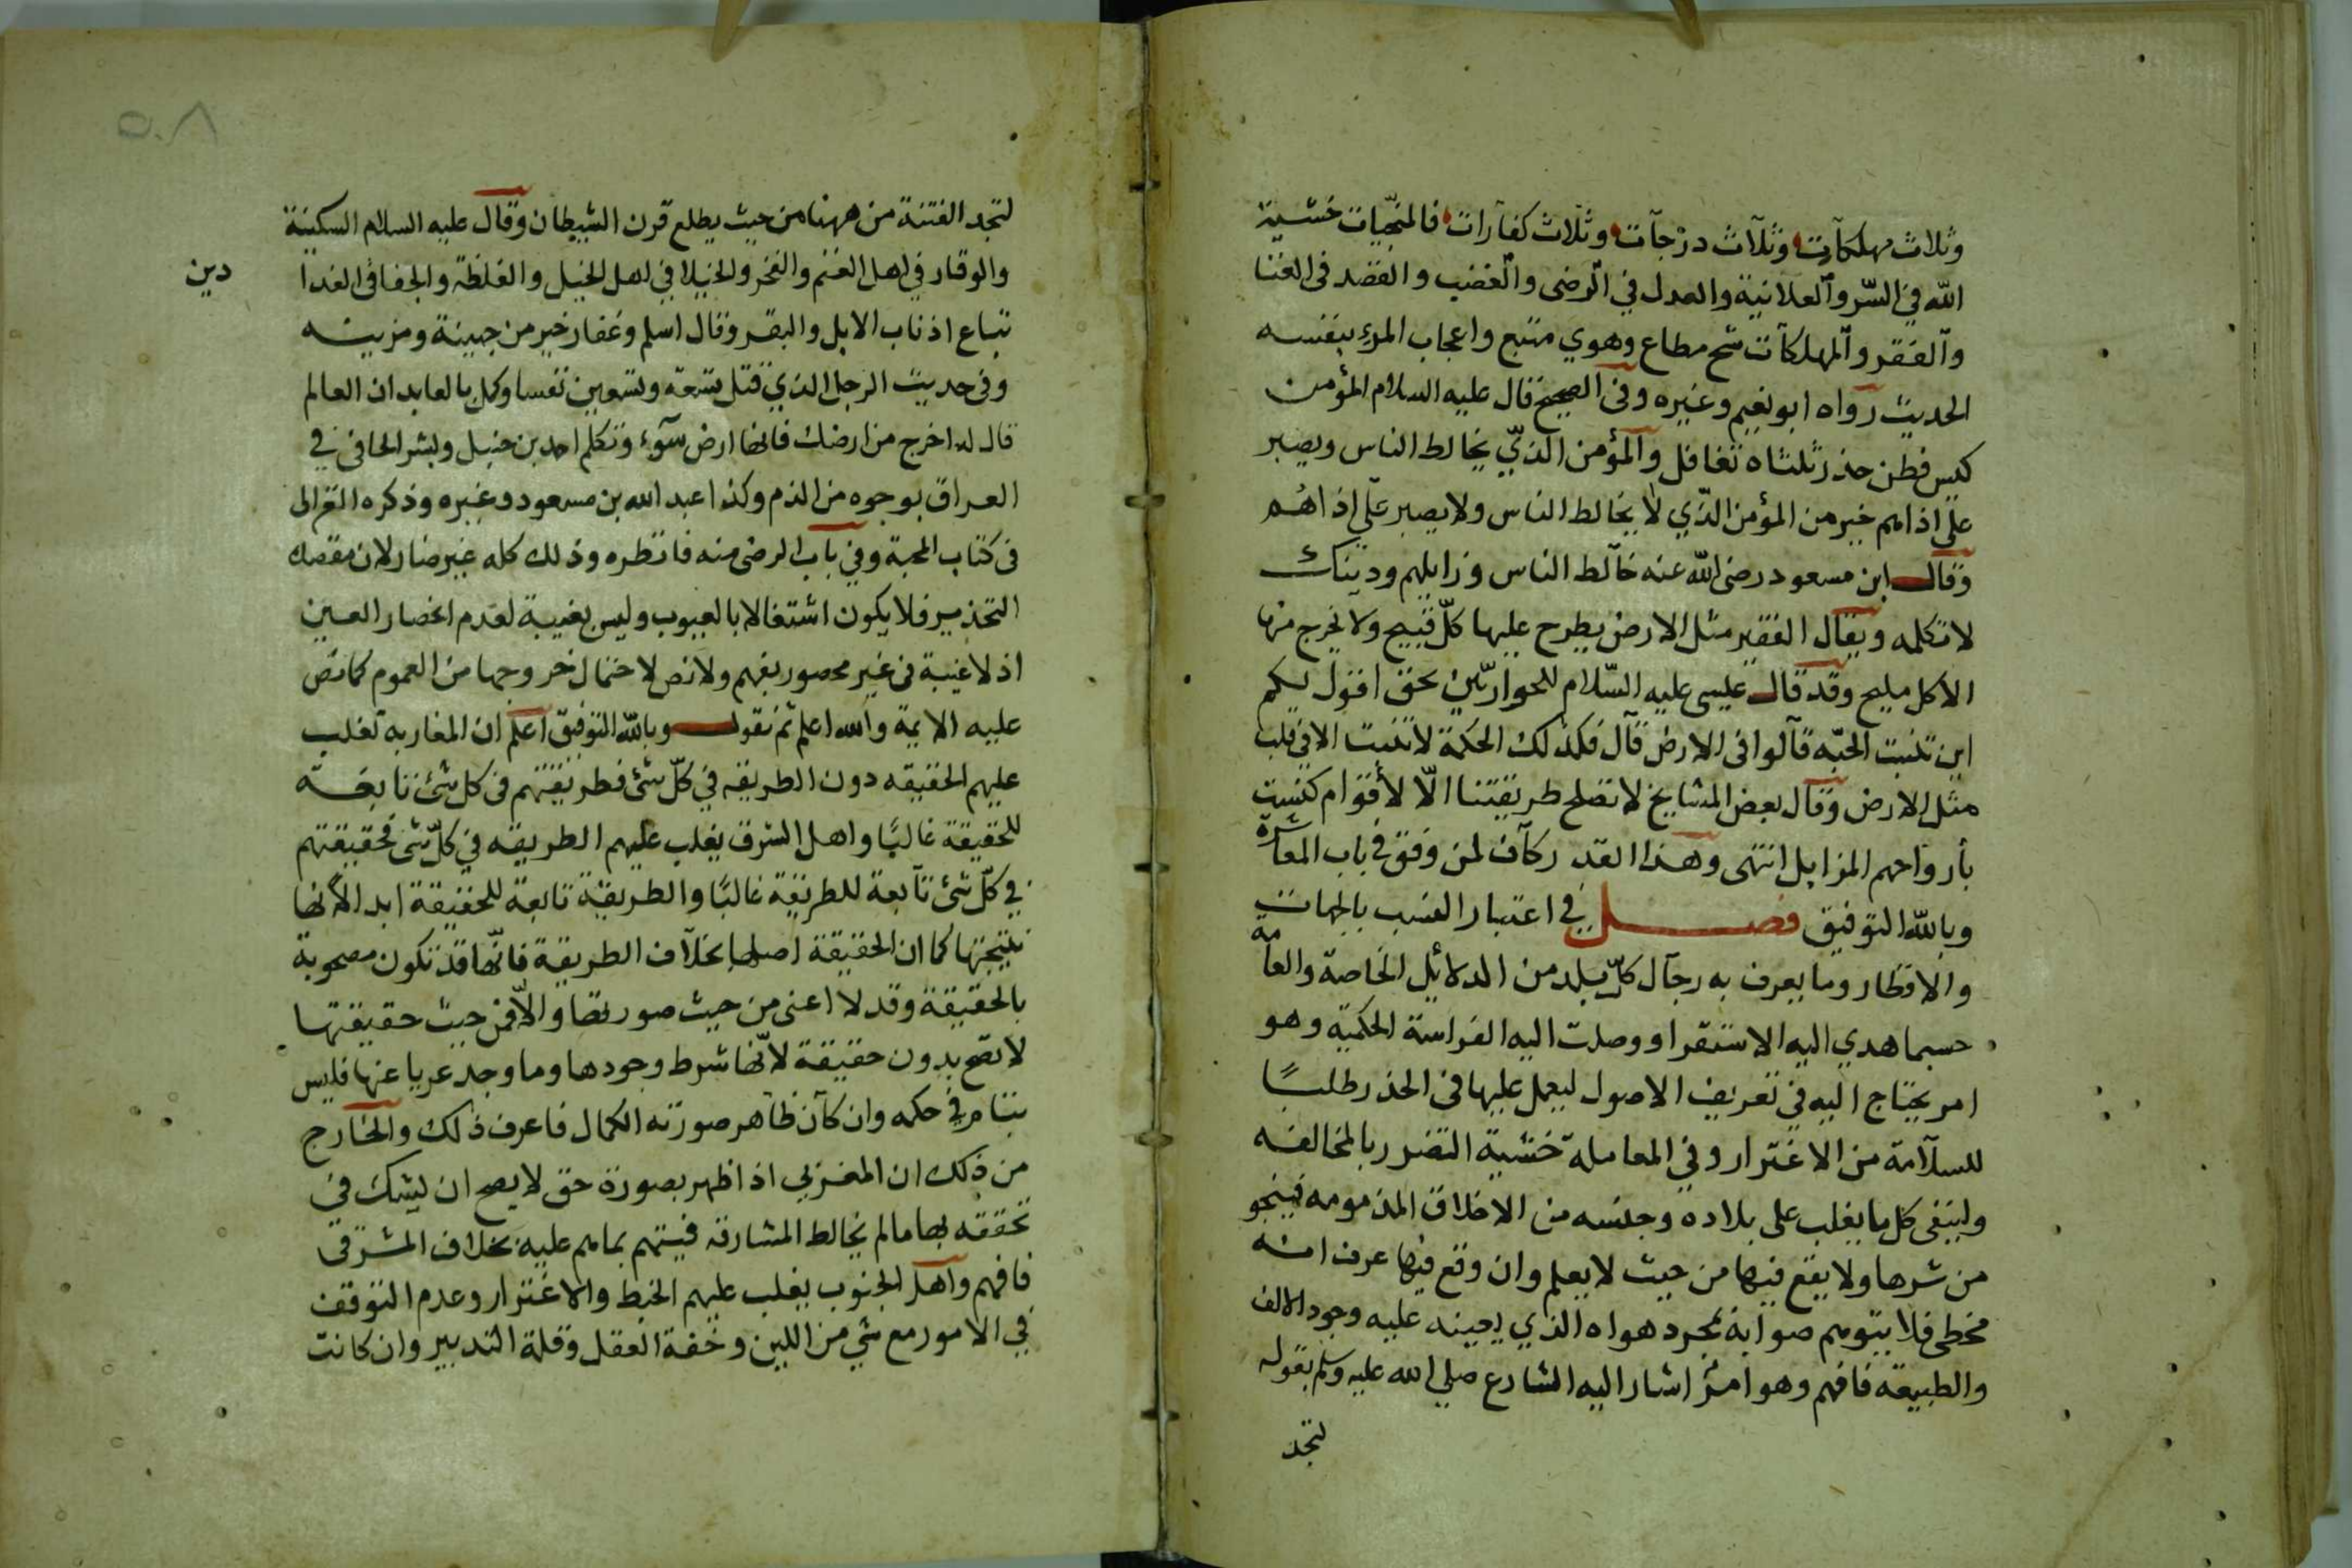 وثلاث مهلكآت وثلآث درجآت وثلاث كفارات فالمنجّيات خشية
الله في السّر وآلعلانية والعدل في الرضى والغضب والقصد في الغنا
وآلفقر وآلمهلكآت شح مطاع وهوي متبع واعجاب المرء بنفسه
الحديث رواه ابو نعيم وغيره وفي الصحيح قال عليه السلام المؤمن
كيس فطن حذر ثلثاه تغافل والمؤمن الذيّ يخالط الناس ويصبر
علي اذاهم خير من المؤمن الذّي لا يخالط الناس ولا يصبر علي اذاهم
وقال ابن مسعود رضى الله عنه خآلط الناس وزايلهم ودينك
لا تكلمه ويقال الفقير مثل الارض يطرح عليها كلّ قبيح ولا يخرج منها
الاكل مليح وقد قال عليسى عليه السّلام للحواريّين بحق اقول لكم
اين تنبت الحبّه قآلوا فى الارض قآل فكذلك الحكمة لا تنبت الا في قلب
مثل الارض وقآل بعض المشايخ لا تصلح طريقتنا الّا لأقوام كنست
بأرواحهم المزابل انتهى وهذا القدر كآف لمن وفق في باب المعاشرة
وبالله التوفيق فصل في اعتبار النسب بالجهات
والاقطار وما يعرف به رجآل كلّ بلد من الدلائل الخاصة والعامة
حسبما هدي اليه الاستقرا ووصلت اليه الفراسة الحكمية وهو
امر يحتاج اليه في تعريف الاصول ليعمل عليها فى الحذر طلبًا
للسلآمة من الاغترار وفي المعاملة خشية التضرر بالمخالفه
ولينفى كل ما يغلب على بلاده وجنسه من الاخلاق المذمومه فينجو
من شرها ولا يقع فيها من حيث لا يعلم وان وقع فيها عرف انه
مخطى فلا يتوهم صوابه بمجرد هواه الذي يعينه عليه وجود الالف
والطبيعة فافهم وهو امرٌ اشار اليه الشارع صلي الله عليه وسلم بقوله
لتجد
٥٠٨
لتجد الفتنة من ههنا من حيث يطلع قرن الشيطان وقال عليه السلام السكينة
والوقار في اهل الغنم والفخر والخيلا في اهل الخيل والغلظة والجفا في الفدا
دين
تباع اذناب الابل والبقر وقال اسلم وغفار خير من جهينة ومزينه
وفى حديث الرجل الذي قتل تسعة وتسعين نفسا وكمل بالعابد ان العالم
قال له اخرج من ارضك فانها ارض سوء وتكلم احمد بن حنبل وبشر الحافى في
العراق بوجوه من الذم وكذا عبد الله بن مسعود وغيره وذكره الغزالى
فى كتاب المحبة وفي باب الرضى منه فانظره وذلك كله غير ضار لان مقصده
التحذير فلا يكون اشتغالا بالعيوب وليس بغيبة لعدم انحصار العين
اذ لا غيبة فى غير محصور بفهم ولا نص لاحتمال خروجها من العموم كما نص
عليه الايمة والله اعلم ثم نقول وبالله التوفيق اعلم ان المغاربه تغلب
عليهم الحقيقه دون الطريقه في كلّ شئ فطريقتهم فى كل شئ تابعة
للحقيقة غالبًا واهل الشرق يغلب عليهم الطريقه في كلّ شئ فحقيقتهم
في كلّ شئ تآبعة للطريقة غالبًا والطريقة تابعة للحقيقة ابدا لانها
نتيجتها كما ان الحقيقة اصلها بخلآف الطريقة فانّها قد تكون مصحوبة
بالحقيقة وقد لا اعنى من حيث صورتها والّا فمن حيث حقيقتها
لا تصح بدون حقيقة لانّها شرط وجودها وما وجد عريا عنها فليس
بتام في حكمه وان كآن ظاهر صورته الكمال فاعرف ذلك والخارج
من ذلك ان المغربي اذا ظهر بصورة حق لا يصح ان يشك في
تحققه بها ما لم يخالط المشارقه فيتهم بما هم عليه بخلاف المشرقى
فافهم واهل الجنوب يغلب عليهم الخبط والاغترار وعدم التوقف
في الامور مع شي من اللين وخفة العقل وقلة التدبير وان كانت